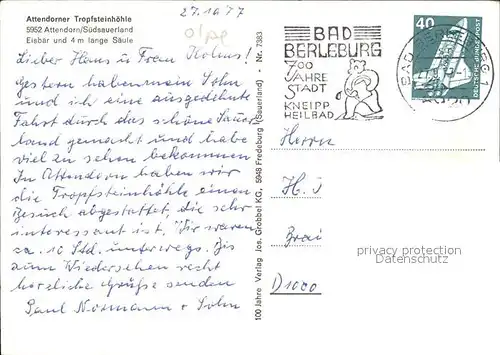 Attendorner Tropfsteinhöhle
5952 Attendorn/Südsauerland
Eisbär und 4 m lange Säule
27.10.77
Olpe
Lieber Hans u Frau
Gestern haben mein Sohn
und ich eine ausgedehnte
Fahrt durch das schöne Sauer
land gemacht und habe
viel zu sehen bekommen
In Attendorn haben wir
die Tropfsteinhöhle einen
Besuch abgestattet, die sehr
interessant ist, Wir waren
ca. 10 Std. unterwegs. Bis
zum Wiedersehen recht
herzliche Grüße senden
Paul Normann + Sohn
100 Jahre Verlag Jos. Grobbel KG, 5948 Fredeburg (Sauerland) · Nr. 7383
BAD
BERLEBURG
700
JAHRE
STADT
KNEIPP
HEILBAD
40
Herrn
H. J
privacy protection
D 1000